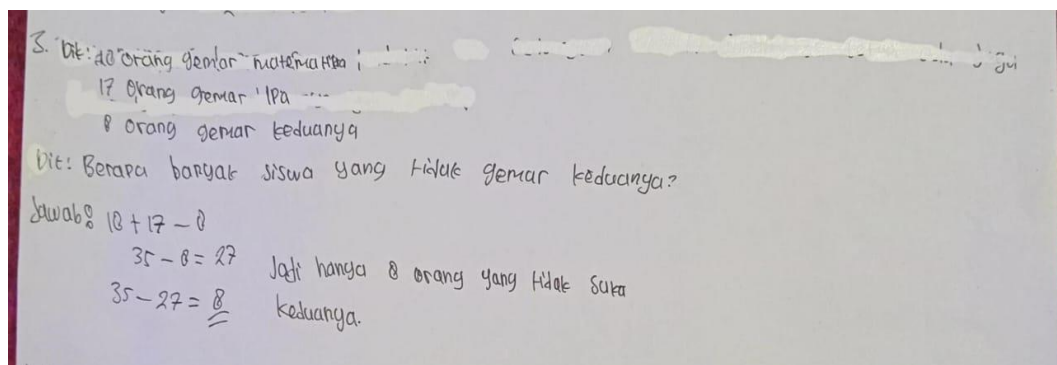 3. Dit: 18 orang gemar matematika
17 orang gemar IPA
8 orang gemar keduanya
Dit: Berapa banyak siswa yang tidak gemar keduanya?
Jawab: 18 + 17 - 8
35 - 8 = 27
Jadi hanya 8 orang yang tidak suka
35 - 27 = 8
keduanya.